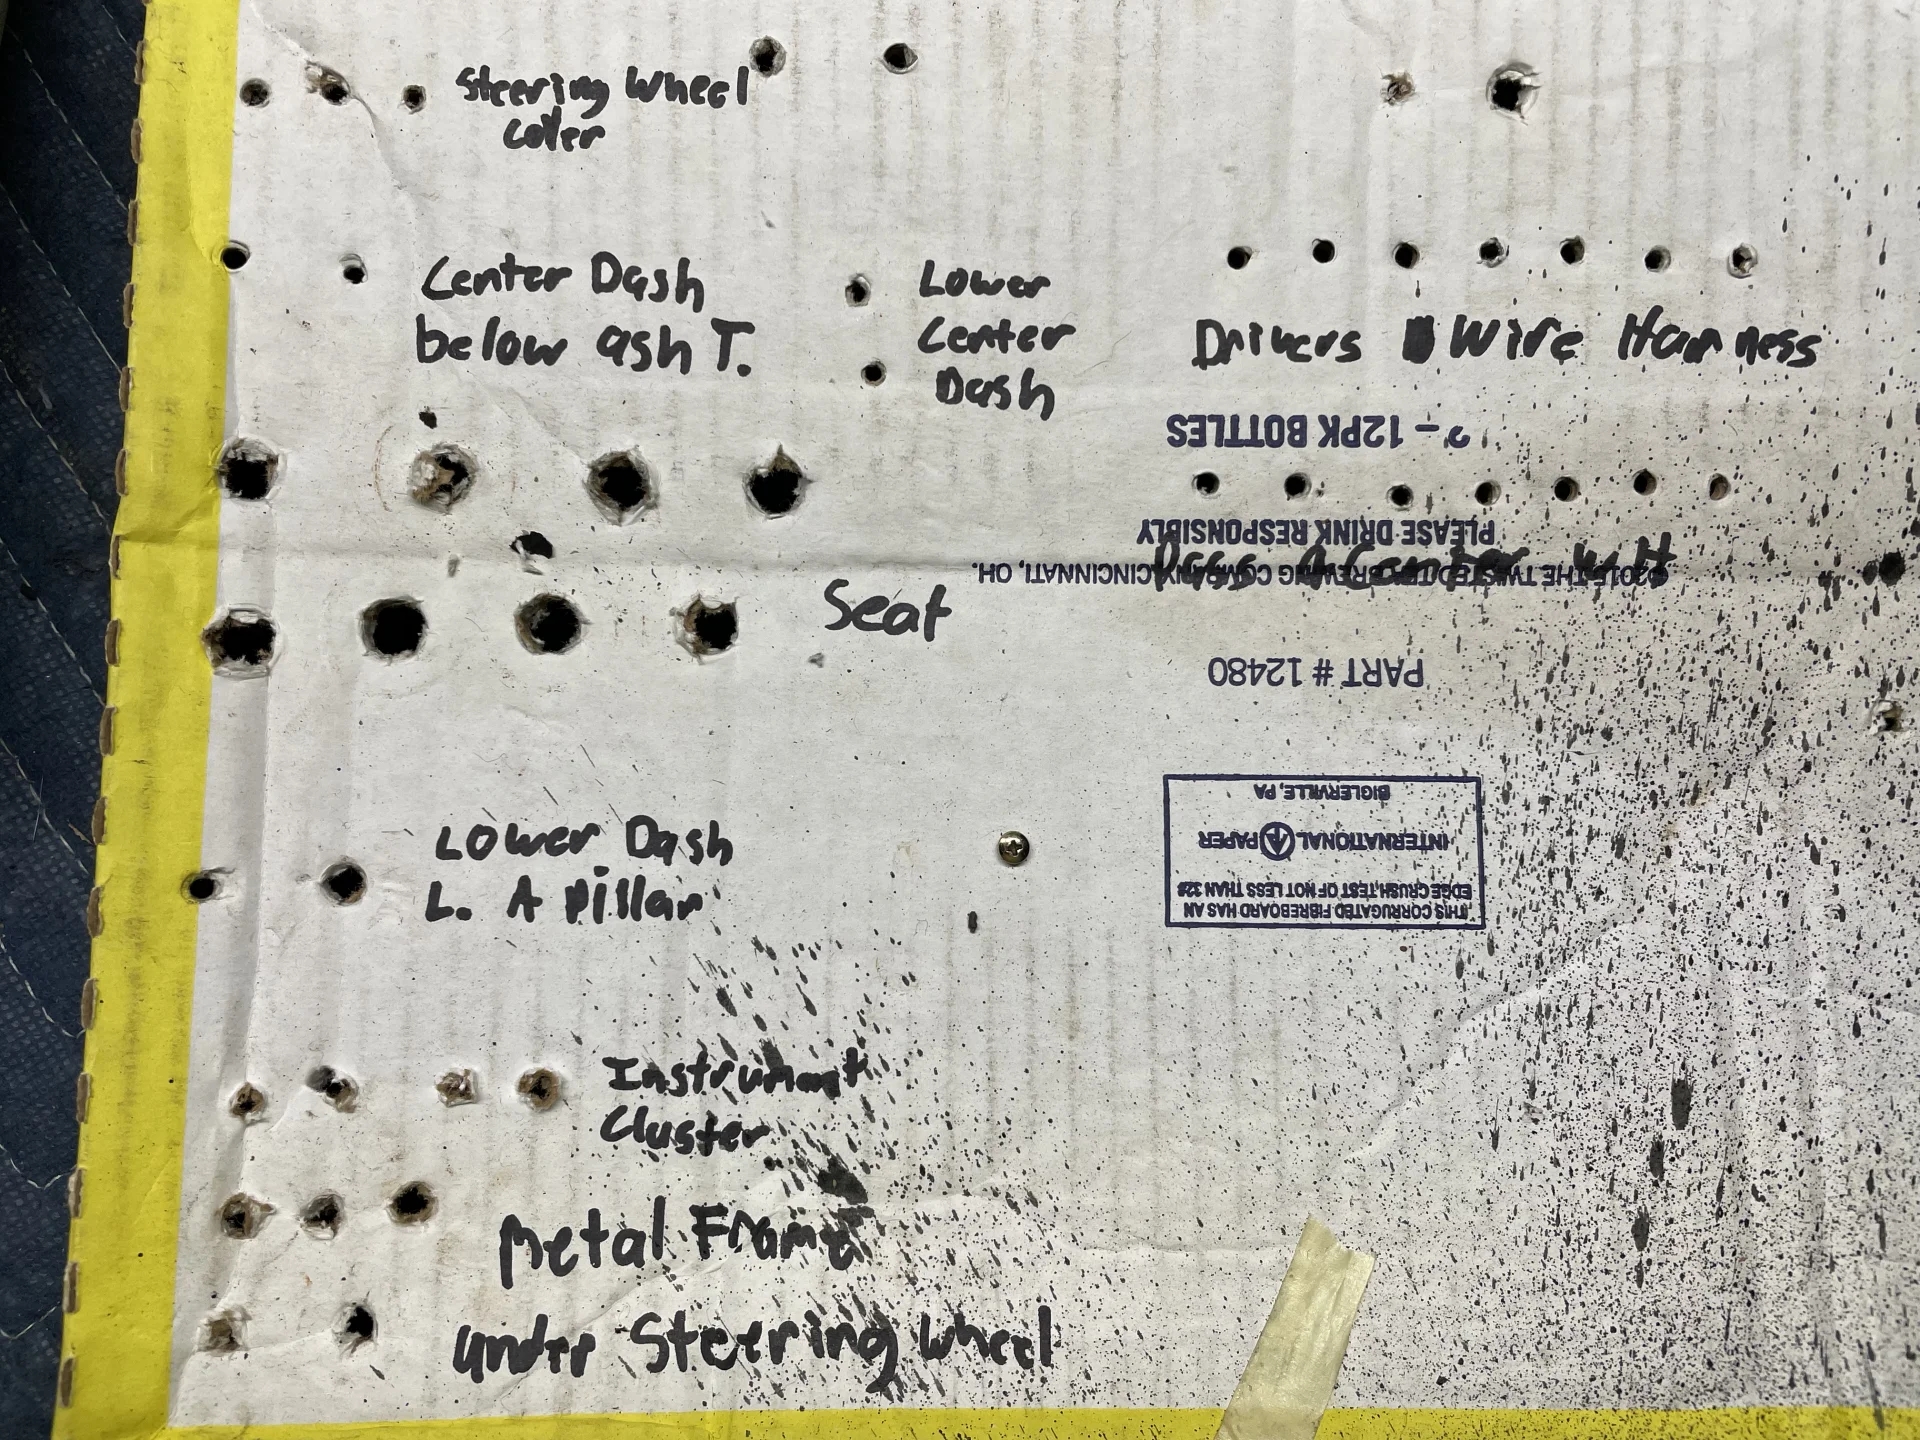 Steering Wheel
Cover
Center Dash
below ash T.
Lower
Center
Dash
Drivers Wire Harness
- 12PK BOTTLES
PLEASE DRINK RESPONSIBLY
©2015 THE TWISTED TEA BREWING COMPANY, CINCINNATI, OH.
Seat
PART # 12480
Lower Dash
L. A Pillar
THIS CORRUGATED FIBREBOARD HAS AN
EDGE CRUSH TEST OF NOT LESS THAN 32#
INTERNATIONAL PAPER
BIGLERVILLE, PA
Instrument
Cluster
Metal Frame
under Steering Wheel